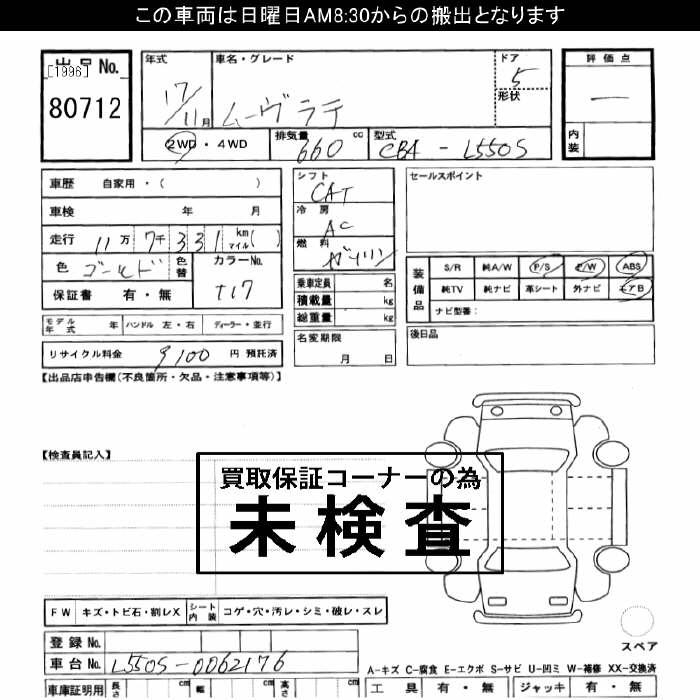 この車両は日曜日AM8:30からの搬出となります
出品No.
[1996]
80712
年式
17/11月
車名・グレード
ムーヴラテ
ドア
5
形状
2WD・4WD
排気量
660 cc
型式
CBA-L550S
評価点
―
内装
車歴 自家用・( )
車検 年 月
走行 11万7千331 km マイル( )
色 ゴールド 色替 カラーNo.
T17
保証書 有・無
モデル年式 年 ハンドル 左・右 ディーラー・並行
リサイクル料金 9100 円 預託済
シフト
CAT
冷房
AC
燃料
ガソリン
乗車定員 名
積載量 kg
総重量 kg
名変期限
月 日
セールスポイント
装備品
S/R 純A/W P/S P/W ABS
純TV 純ナビ 革シート 外ナビ エアB
ナビ型番:
後日品
【出品店申告欄(不良箇所・欠品・注意事項等)】
【検査員記入】
買取保証コーナーの為
未検査
FW キズ・トビ石・割レX シート内装 コゲ・穴・汚レ・シミ・破レ・スレ
登録No.
車台No. L550S-0062176
車庫証明用 長さ cm 幅 cm 高さ cm
スペア
A-キズ C-腐食 E-エクボ S-サビ U-凹ミ W-補修 XX-交換済
工具 有・無 ジャッキ 有・無